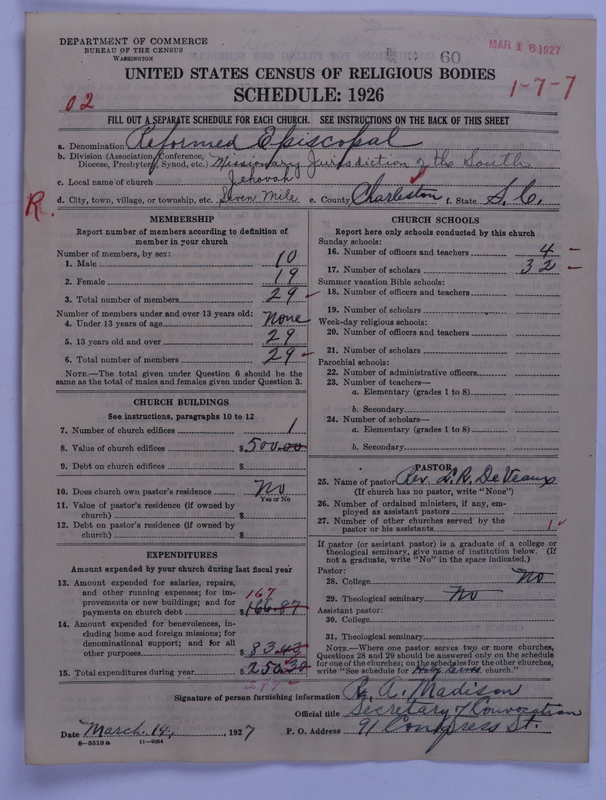 DEPARTMENT OF COMMERCE
BUREAU OF THE CENSUS
WASHINGTON
60
MAR 16 1927
UNITED STATES CENSUS OF RELIGIOUS BODIES
1-7-7
SCHEDULE: 1926
02
FILL OUT A SEPARATE SCHEDULE FOR EACH CHURCH. SEE INSTRUCTIONS ON THE BACK OF THIS SHEET
a. Denomination Reformed Episcopal
b. Division (Association, Conference, Diocese, Presbytery, Synod, etc.) Missionary Jurisdiction of the South
c. Local name of church Jehovah
d. City, town, village, or township, etc. Seven Mile e. County Charleston f. State S.C.
R.
MEMBERSHIP
Report number of members according to definition of
member in your church
Number of members, by sex:
1. Male 10
2. Female 19
3. Total number of members 29
Number of members under and over 13 years old:
4. Under 13 years of age None
5. 13 years old and over 29
6. Total number of members 29
NOTE.—The total given under Question 6 should be the
same as the total of males and females given under Question 3.
CHURCH BUILDINGS
See instructions, paragraphs 10 to 12
7. Number of church edifices 1
8. Value of church edifices $500.00
9. Debt on church edifices $
10. Does church own pastor's residence No
Yes or No
11. Value of pastor's residence (if owned by
church) $
12. Debt on pastor's residence (if owned by
church) $
EXPENDITURES
Amount expended by your church during last fiscal year
13. Amount expended for salaries, repairs,
and other running expenses; for im- 167
provements or new buildings; and for
payments on church debt $166.87
14. Amount expended for benevolences, in-
cluding home and foreign missions; for
denominational support; and for all
other purposes $83.43
15. Total expenditures during year $250.30
CHURCH SCHOOLS
Report here only schools conducted by this church
Sunday schools:
16. Number of officers and teachers 4
17. Number of scholars 32
Summer vacation Bible schools:
18. Number of officers and teachers
19. Number of scholars
Week-day religious schools:
20. Number of officers and teachers
21. Number of scholars
Parochial schools:
22. Number of administrative officers
23. Number of teachers—
a. Elementary (grades 1 to 8)
b. Secondary
24. Number of scholars—
a. Elementary (grades 1 to 8)
b. Secondary
PASTOR
25. Name of pastor Rev. L.R. DeVeaux
(If church has no pastor, write "None")
26. Number of ordained ministers, if any, em-
ployed as assistant pastors
27. Number of other churches served by the
pastor or his assistants 1
If pastor (or assistant pastor) is a graduate of a college or
theological seminary, give name of institution below. (If
not a graduate, write "No" in the space indicated.)
Pastor:
28. College No
29. Theological seminary No
Assistant pastor:
30. College
31. Theological seminary
NOTE.—Where one pastor serves two or more churches,
Questions 28 and 29 should be answered only on the schedule
for one of the churches; on the schedules for the other churches,
write "See schedule for church."
Signature of person furnishing information R. A. Madison
Official title Secretary of Convocation
Date March 14, 1927 P. O. Address 91 Congress St.
8-5515 a 11-9084